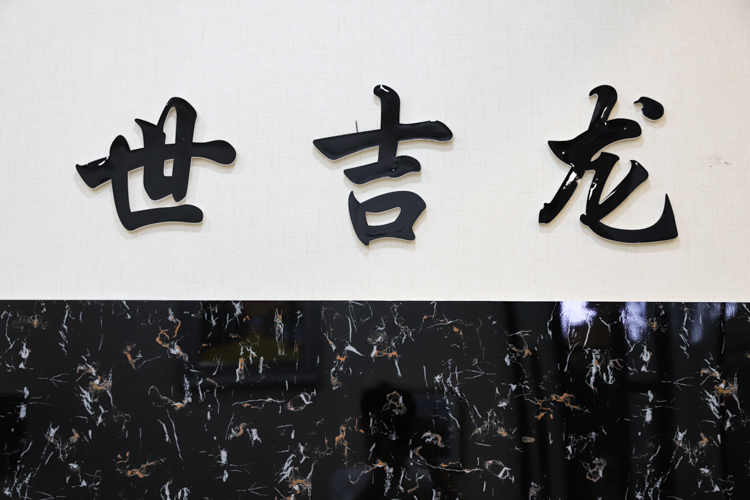 世吉龙